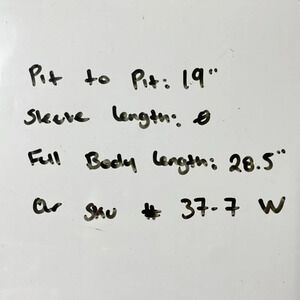 Pit to Pit: 19"
Sleeve Length: 0
Full Body Length: 28.5"
Our SKU # 37-7 W